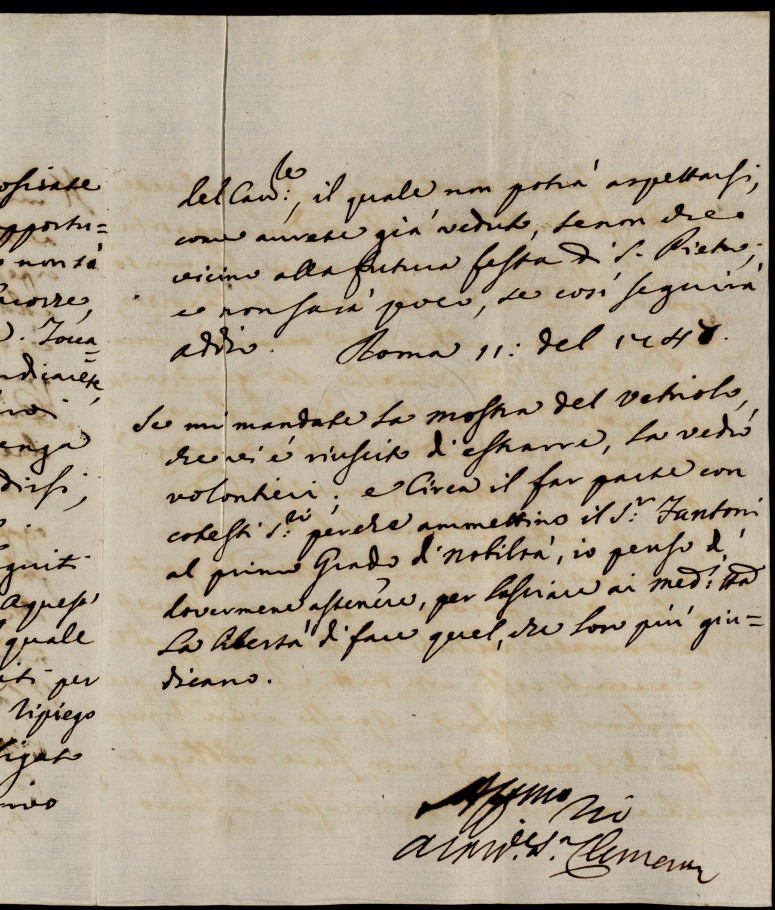 osirate
pportu=
e non sà
. Tocca=
enga
dirsi,
quale
per
ripiego
del Car:le, il quale non potrà aspettarsi,
come avrete già veduto, se non che
vicino alla futura festa di S. Pietro;
e non sarà poco, se così seguirà
addio. Roma 11: del
Se mi mandate la mostra del vetriolo,
che vi è riuscito d'estrarre, la vedrò
volontieri; e Circa il far parte con
cotesti S:ri perche ammettino il S:r Fantoni
al primo Grado di Nobiltà, io penso di
dovermene astenere, per lasciare ai
la libertà di fare quel, che loro più giu=
dicano.
Affmo Zio